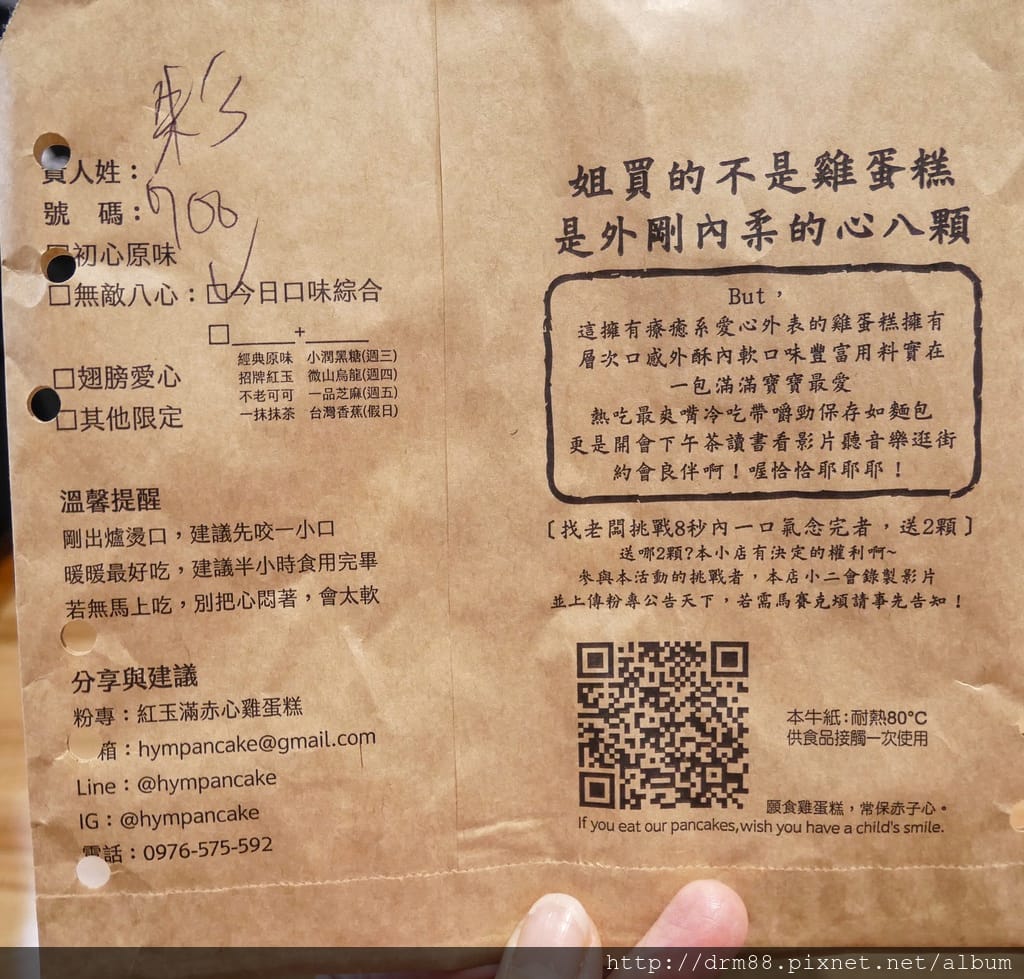 彩
貴人姓：
號　碼：708
□初心原味
□無敵八心：□今日口味綜合
□_____+_____
經典原味　小潤黑糖(週三)
招牌紅玉　微山烏龍(週四)
不老可可　一品芝麻(週五)
一抹抹茶　台灣香蕉(假日)
□翅膀愛心
□其他限定
溫馨提醒
剛出爐燙口，建議先咬一小口
暖暖最好吃，建議半小時食用完畢
若無馬上吃，別把心悶著，會太軟
分享與建議
粉專：紅玉滿赤心雞蛋糕
箱：hympancake@gmail.com
Line：@hympancake
IG：@hympancake
電話：0976-575-592
姐買的不是雞蛋糕
是外剛內柔的心八顆
But，
這擁有療癒系愛心外表的雞蛋糕擁有
層次口感外酥內軟口味豐富用料實在
一包滿滿寶寶最愛
熱吃最爽嘴冷吃帶嚼勁保存如麵包
更是開會下午茶讀書看影片聽音樂逛街
約會良伴啊！喔恰恰耶耶耶！
〔找老闆挑戰8秒內一口氣念完者，送2顆〕
送哪2顆?本小店有決定的權利啊~
參與本活動的挑戰者，本店小二會錄製影片
並上傳粉專公告天下，若需馬賽克煩請事先告知！
本牛紙：耐熱80°C
供食品接觸一次使用
願食雞蛋糕，常保赤子心。
If you eat our pancakes,wish you have a child's smile.
http://drm88.pixnet.net/album